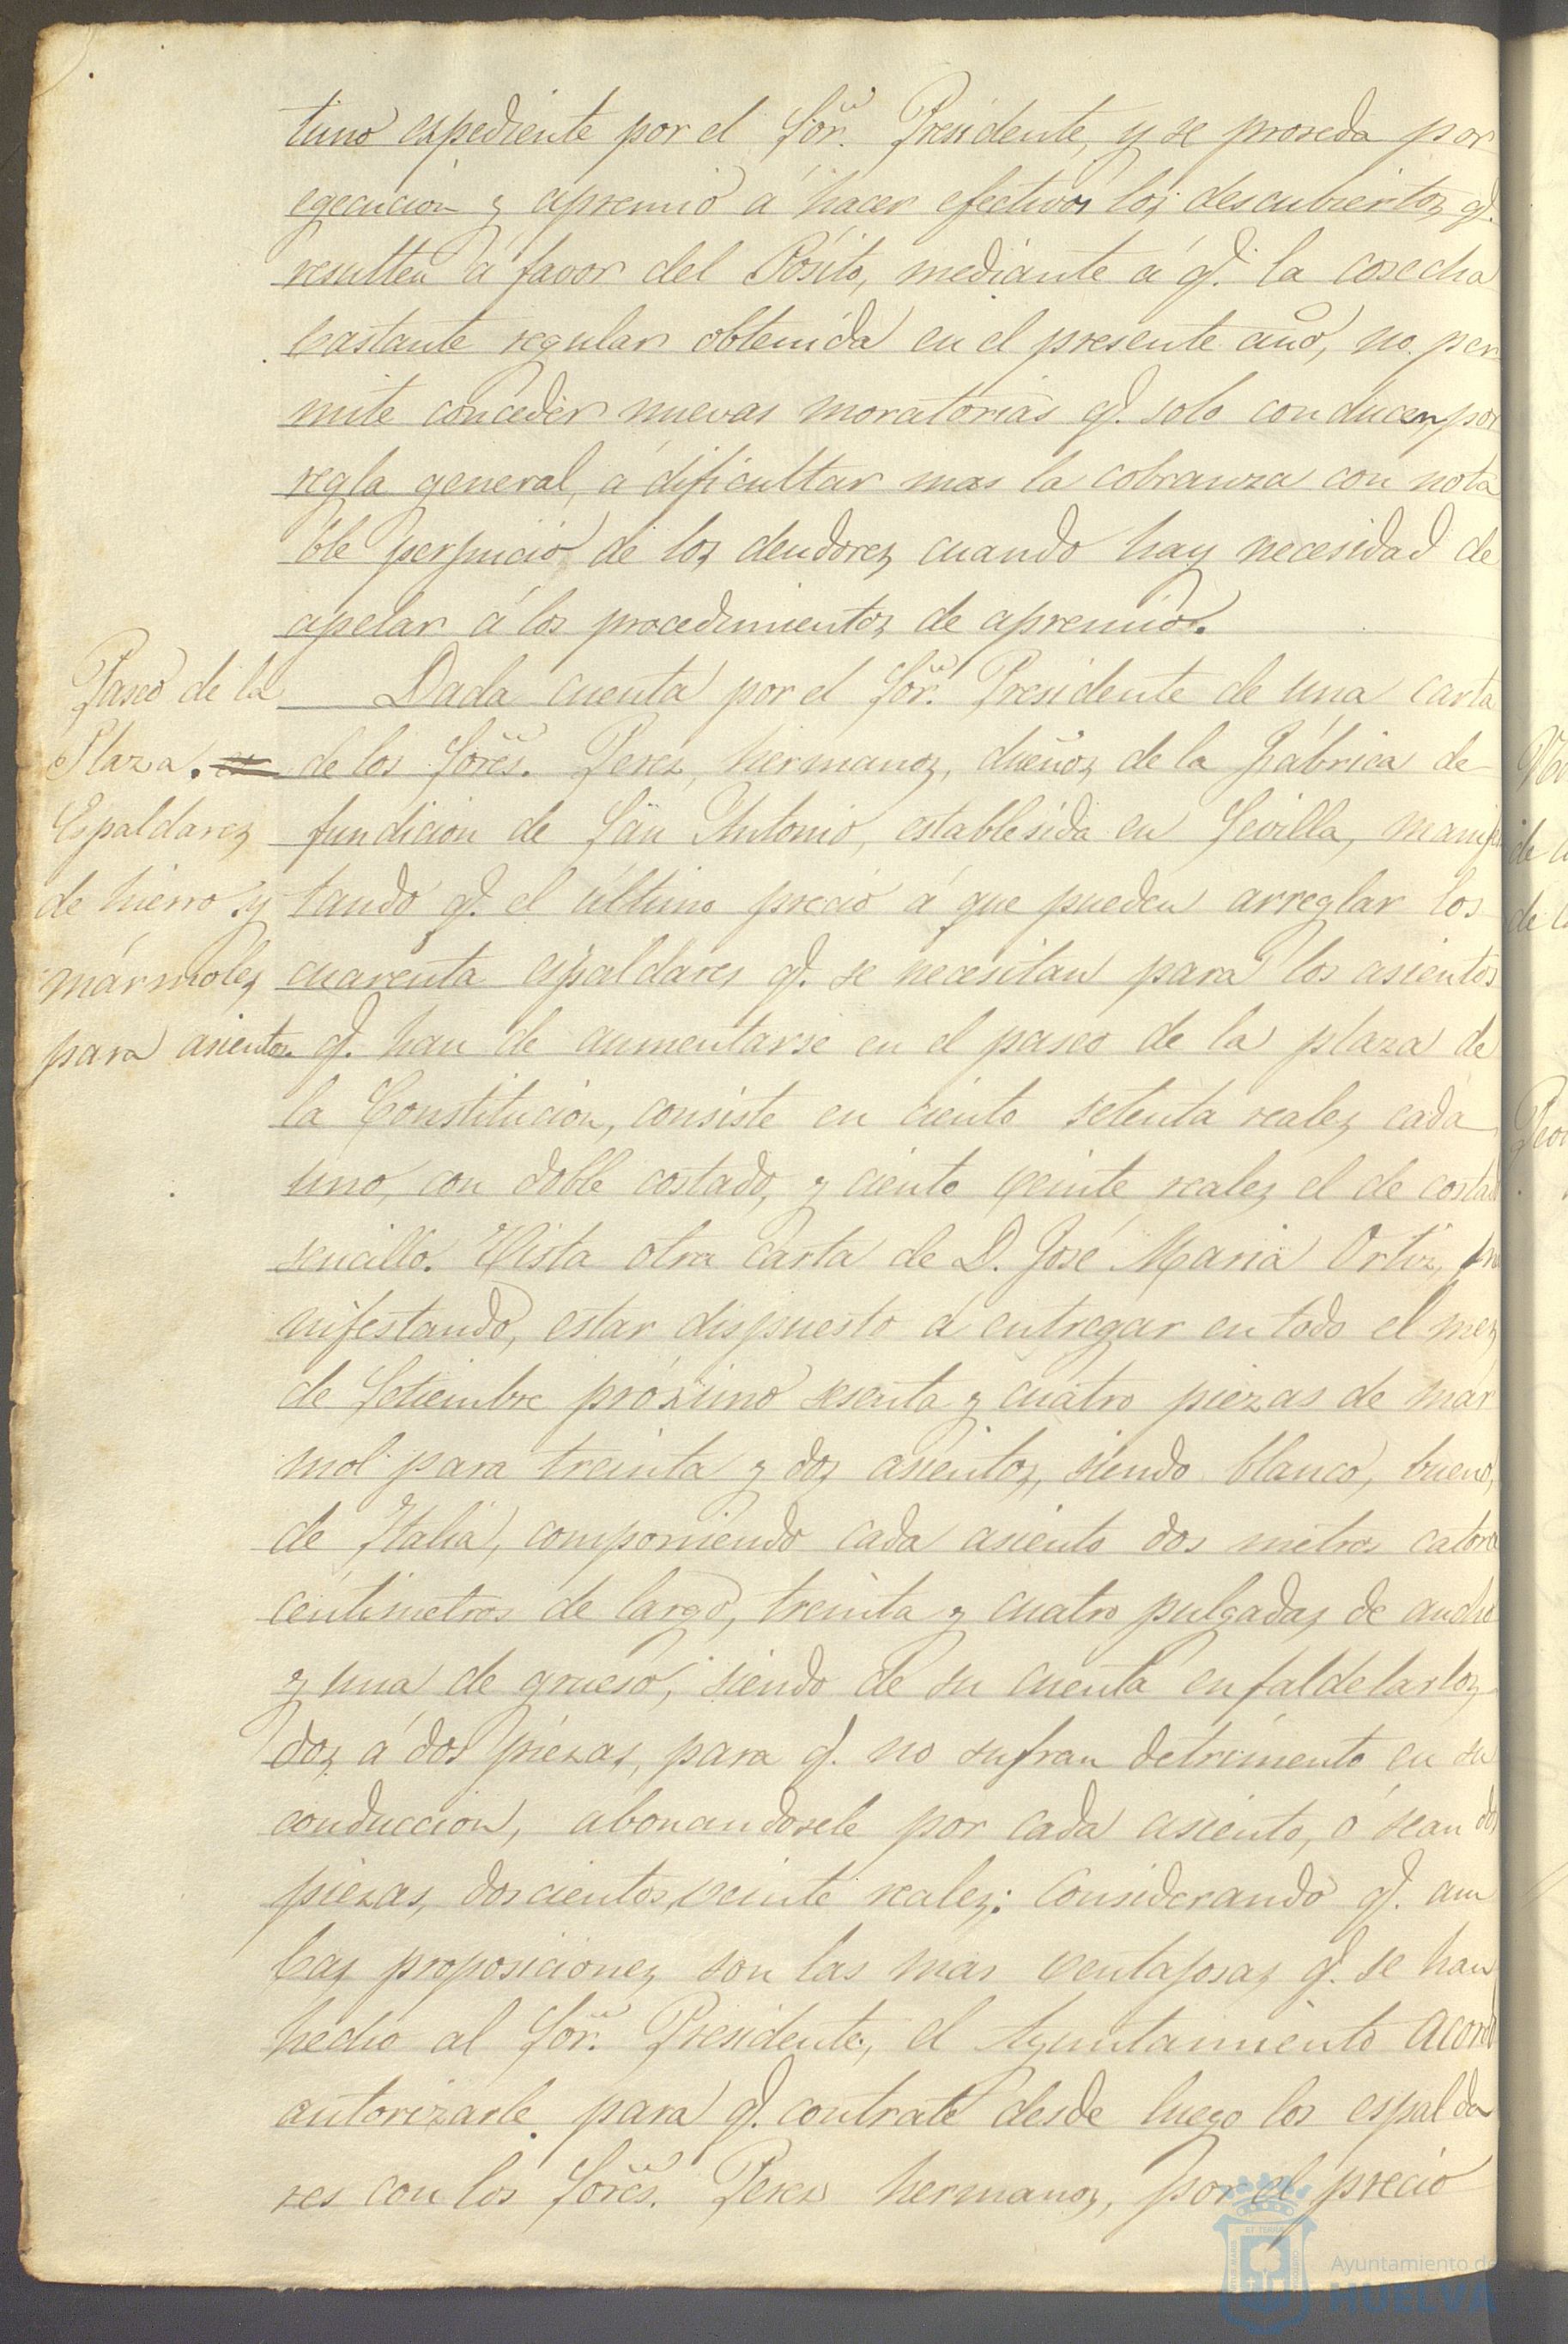 tuno expediente por el Sor. Presidente, y se proseda por
egecucion y apremio á hacer efectivos los descubiertos q.
resulten á favor del Pósito, mediante á q. la cosecha
bastante regular obtenida en el presente año, no per
mite conceder nuevas moratorias q. solo conducen, por
regla general, á dificultar mas la cobranza con nota
ble perjuicio de los deudores cuando hay necesidad de
apelar á los procedimientos de apremio.
Paseo de la
Plaza.
Espaldares
de hierro y
mármoles
para asientos.
Dada cuenta por el Sor. Presidente de una carta
de los Sores. Perez, hermanos, dueños de la Fábrica de
fundicion de San Antonio, establesida en Sevilla, manifes
tando q. el último precio á que pueden arreglar los
cuarenta espaldares q. se necesitan para los asientos
q. han de aumentarse en el paseo de la plaza de
la Constitucion, consiste en ciento setenta reales cada
uno, con doble costado, y ciento veinte reales el de costado
sencillo. Vista otra carta de D. José Maria Ortiz, ma
nifestando, estar dispuesto á entregar en todo el mes
de Setiembre próximo sesenta y cuatro piezas de mar
mol para treinta y dos asientos, siendo blanco, bueno,
de Italia, componiendo cada asiento dos metros catorce
centimetros de largo, treinta y cuatro pulgadas de ancho
y una de grueso, siendo de su cuenta enfaldelarlos
dos á dos piezas, para q. no sufran detrimento en su
conduccion, abonandosele por cada asiento, ó sean dos
piezas, doscientos veinte reales: Considerando q. am
bas proposiciones son las mas ventajosas q. se han
hecho al Sor. Presidente, el Ayuntamiento acordó
autorizarle para q. contrate desde luego los espalda
res con los Sores. Perez hermanos, por el precio
Ayuntamiento de
HUELVA